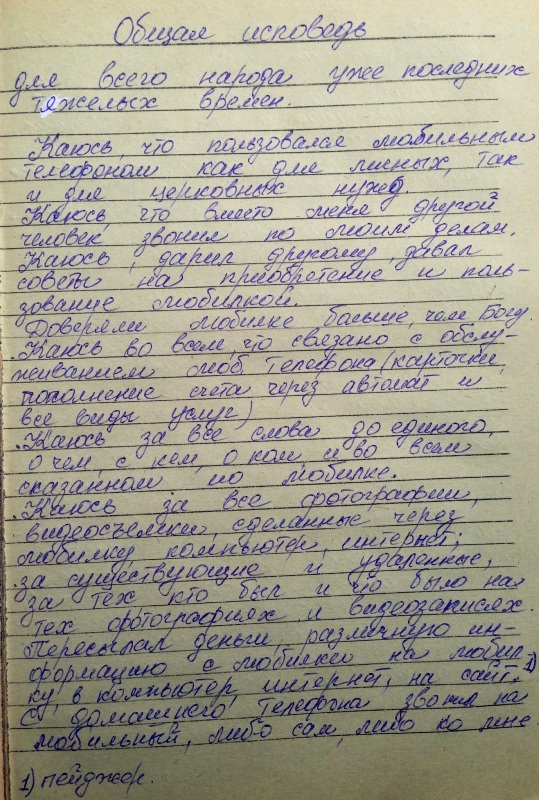 Общая исповедь
для всего народа уже последних
тяжелых времен.
Каюсь, что пользовался мобильным
телефоном как для личных, так
и для церковных нужд.
Каюсь, что вместо меня другой
человек звонил по моим делам.
Каюсь, дарил другому, давал
советы на приобретение и поль-
зование мобилкой.
Доверяли мобилке больше, чем Богу.
Каюсь во всем, что связано с обслу-
живанием моб. телефона (карточки,
пополнение счета через автомат и
все виды услуг)
Каюсь за все слова до единого,
о чем, с кем, о ком и во всем
сказанном по мобилке.
Каюсь за все фотографии,
видеосъемки, сделанные через
мобилку, компьютер, интернет;
за существующие и удаленные,
за тех кто был и что было на
тех фотографиях и видеозаписях.
Пересылал деньги, различную ин-
формацию с мобилки на мобил- 1)
ку, в компьютер, интернет, на сайт.
С домашнего телефона звонил на
мобильный, либо сам, либо ко мне.
1) пейджер.